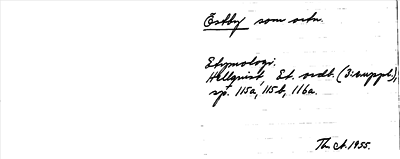 Östby som ortn.
Etymologi.
Hellquist Et. ordb. (3:suppl.),
sp. 115a, 115b, 116a.
Th 1955.